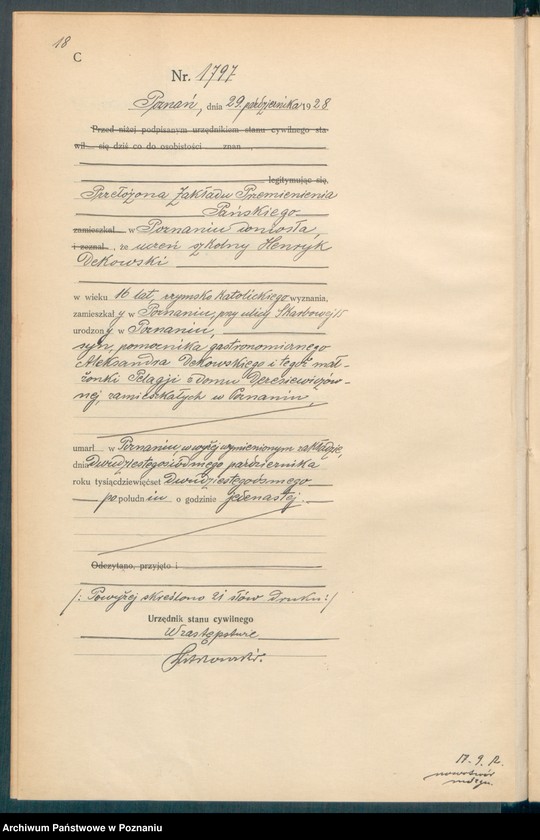 18
C
Nr. 1797
Poznań, dnia 29 października 1928
Przed niżej podpisanym urzędnikiem stanu cywilnego sta-
wił się dziś co do osobistości znan
legitymując się,
Przełożona Zakładu Przemienienia
Pańskiego
zamieszkał w Poznaniu wniosła,
i zeznał, że uczeń szkolny Henryk
Dekowski
w wieku 16 lat, rzymsko katolickiego wyznania,
zamieszkały w Poznaniu, przy ulicy Skarbowej
urodzony w Poznaniu,
syn, pomocnika gastronomicznego
Aleksandra Dekowskiego i tegoż mał-
żonki Pelagji z domu Dereziewiczów-
nej, zamieszkałych w Poznaniu,
umarł w Poznaniu, w wyżej wymienionym zakładzie,
dnia Dwudziestegosiódmego października
roku tysiącdziewięćset Dwudziestegoósmego
po południu o godzinie jedenastej.
Odczytano, przyjęto i
/: Powyżej skreślono 21 słów Druku :/
Urzędnik stanu cywilnego
W zastępstwie
17. 9. 12.
nowotwór
Archiwum Państwowe w Poznaniu